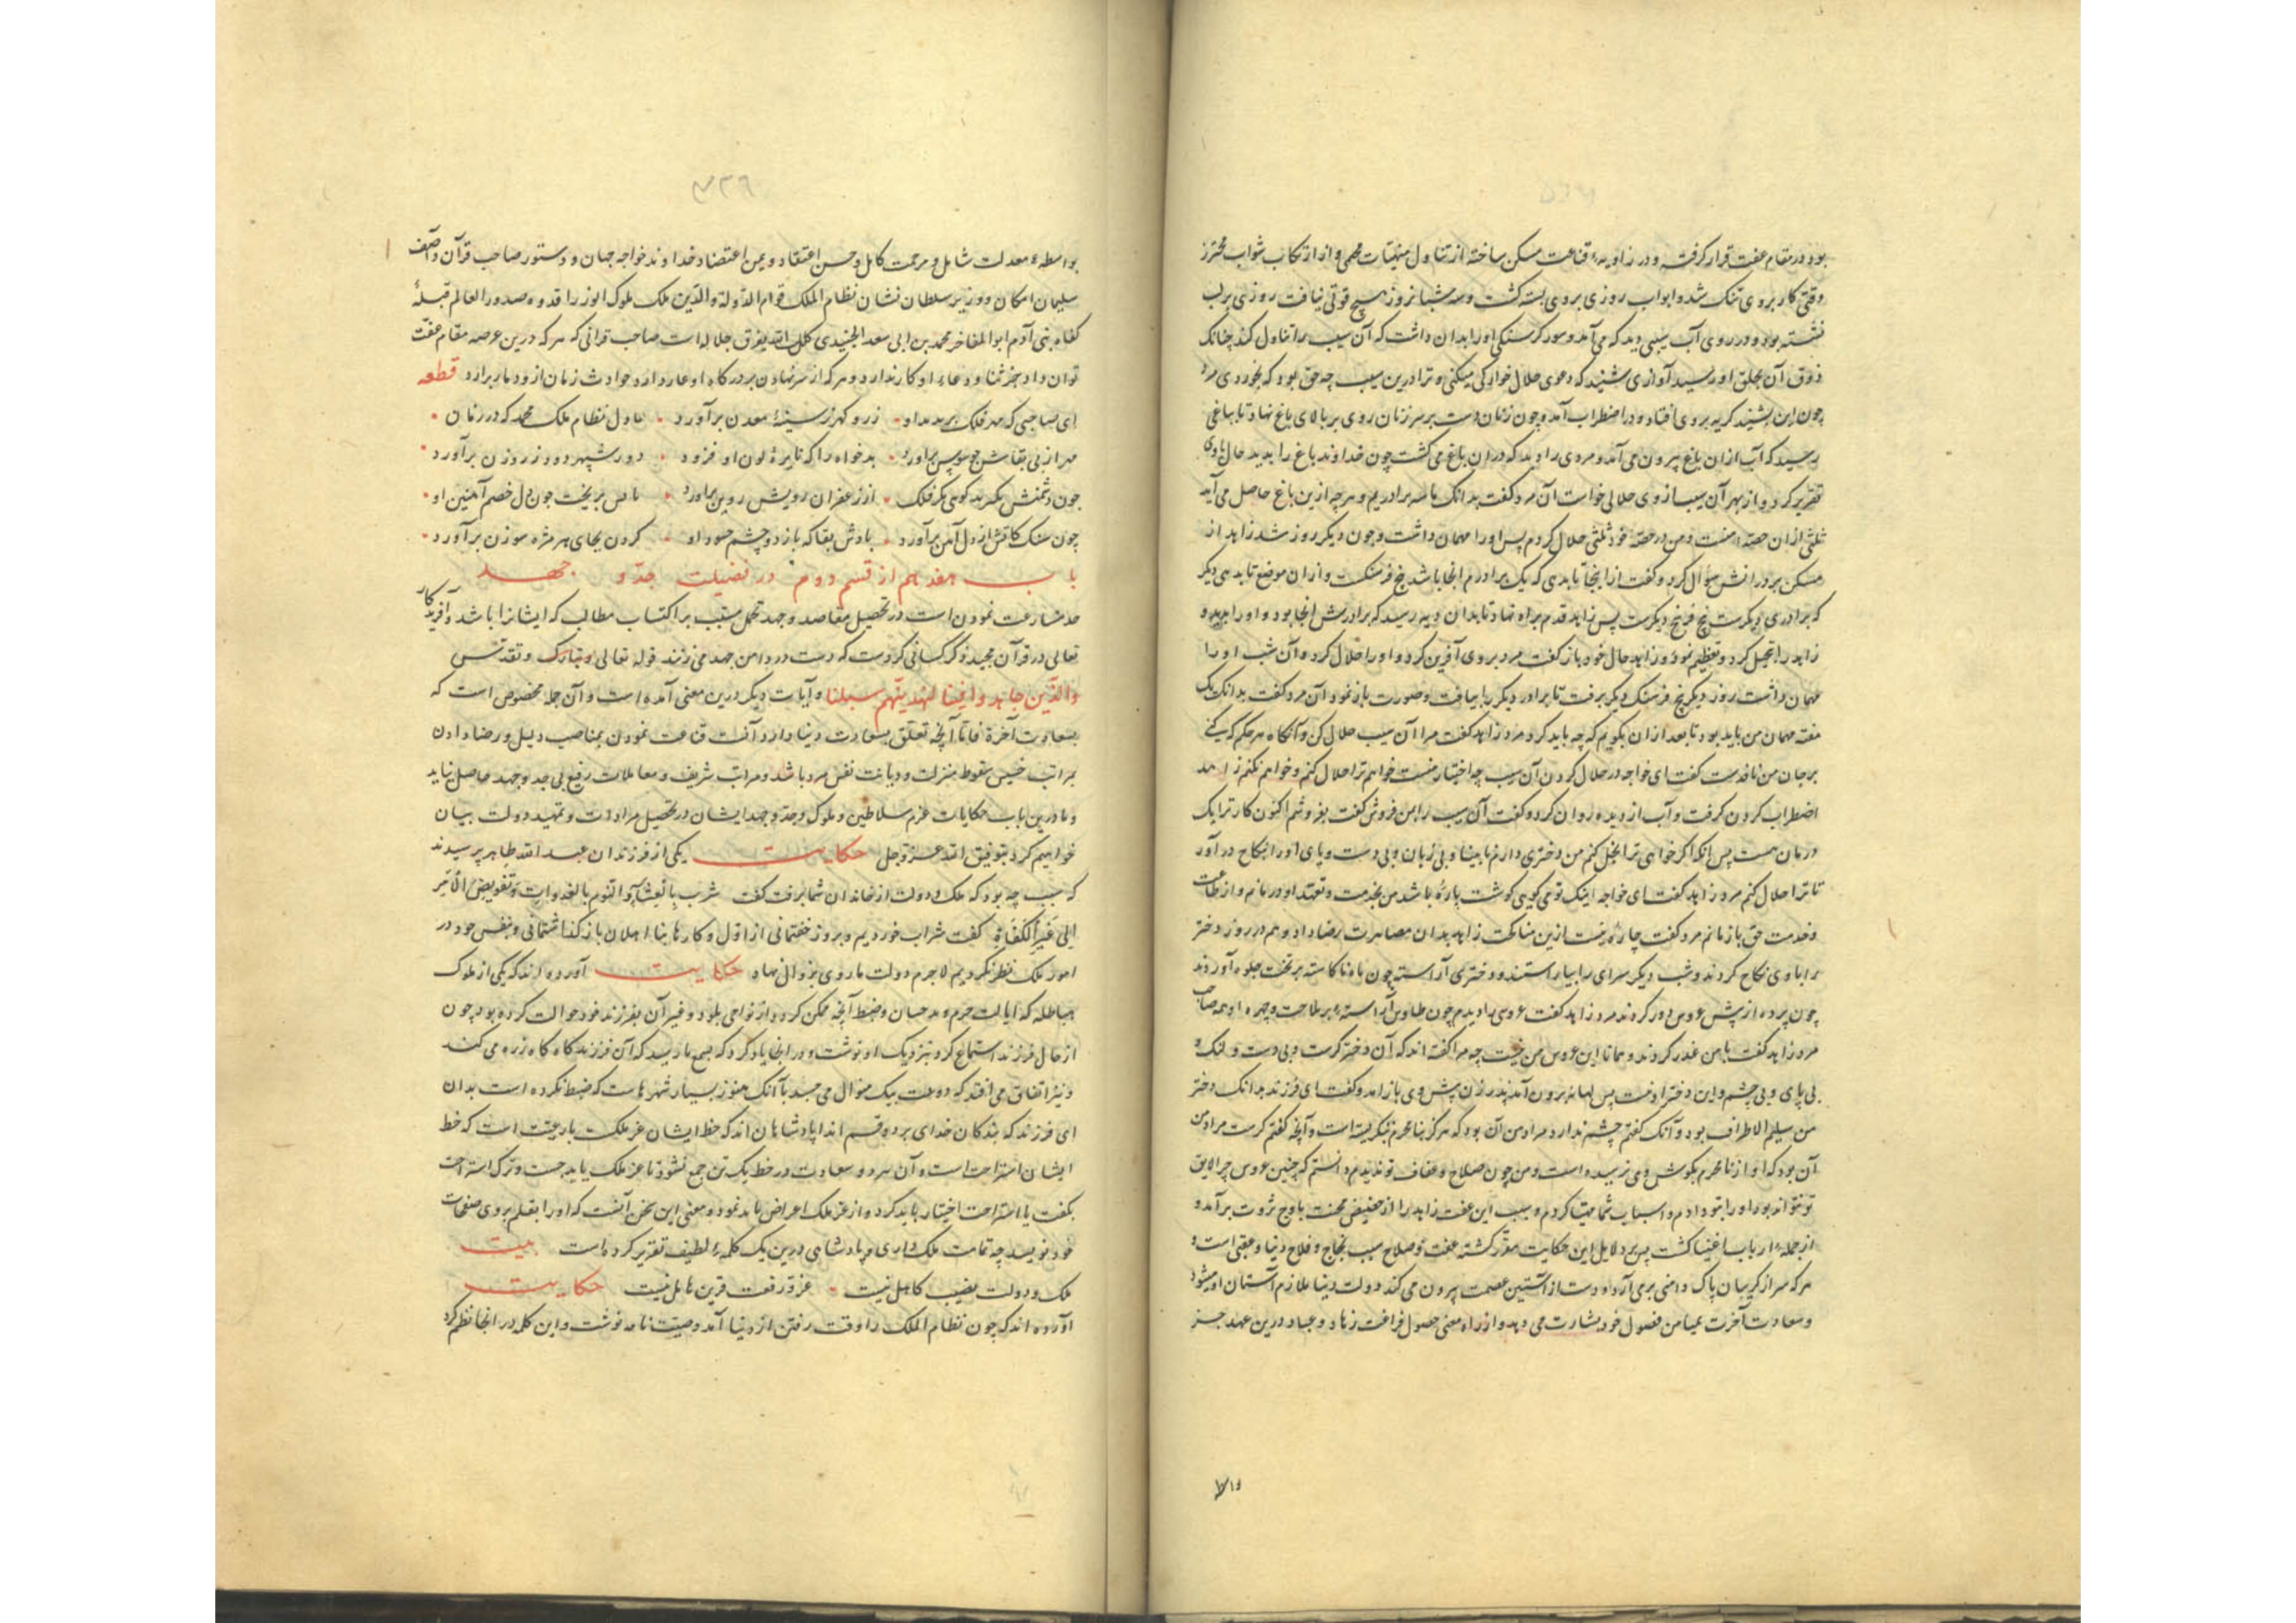 بود و در مقام عفت قرار گرفته و در زاویهٔ قناعت مسکن ساخته از تناول منهیات محمی و از ارتکاب شوایب محترز
وقتی کار بر وی تنک شد و ابواب روزی بر وی بسته کشت و سه شبانروز هیچ قوتی نیافت روزی بر لب
نشسته بود و در روی آب سیبی دید که می آمد و سورت کرسنکی او را بدان داشت که آن سیب را تناول کند چنانک
ذوق آن بحلق او رسید آوازی شنید که دعوی حلال خوارکی میکنی و ترا درین سیب چه حق بود که بخوردی مرد
چون این بشنید کریه بروی افتاد و در اضطراب آمد و چون زنان دست بر سر زنان روی بر بالای باغ نهاد تا بباغی
رسید که آب از ان باغ بیرون می آمد و مردی را دید که در ان باغ می کشت چون خداوند باغ را بدید حال با وی
تقریر کرد و از بهر آن سیب از وی حلالی خواست آن مرد کفت بدانک ما سه برادریم و هر چه ازین باغ حاصل می آید
ثلثی از ان حصهٔ منست و من در حصهٔ خود ثلثی حلال کردم پس او را مهمان داشت و چون دیکر روز شد زاهد از
مسکن برادرانش سؤال کرد و کفت از اینجا تا بدهی که یک برادرم انجا باشد پنج فرسنکست و از ان موضع تا بدهی دیکر
که برادری دیکرست پنج فرسنج دیکرست پس زاهد قدم براه نهاد تا بدان دیه رسید که برادرش انجا بود و او را بدید و
زاهد را تبجیل کرد و تعظیم نمود و زاهد حال خود باز کفت مرد بروی آفرین کرد و او را حلال کرد و آن شب او را
مهمان داشت روز دیکر پنج فرسنک دیکر برفت تا برادر دیکر را بیافت و صورت باز نمود آن مرد کفت بدانک یک
هفته مهمان من باید بود تا بعد از ان بکویم که چه باید کرد مرد زاهد کفت مرا آن سیب حلال کن و آنکاه هر حکم که کنی
بر جان من نافدست کفت ای خواجه در حلال کردن آن سیب چه اختیار منست خواهم ترا حلال کنم و خواهم نکنم زاهد
اضطراب کردن کرفت و آب از دیده روان کرد و کفت آن سیب را بمن فروش کفت بفروشم اکنون کار ترا یک
درمان هست پس بانکه اکر خواهی ترا بحل کنم من دختری دارم نابینا و بی زبان و بی دست و پای او را بنکاح در آور
تا ترا حلال کنم مرد زاهد کفت ای خواجه اینک تو می کویی کوشت پاره باشد من بخدمت و تعهد او در مانم و از طاعت
و خدمت حق باز مانم مرد کفت چاره نیست ازین مناکحت زاهد بدان مصاهرت رضا داد و هم در روز دختر
را با وی نکاح کردند و شب دیکر سرای را بیاراستند و دختری آراسته چون ماه ناکاسته بر تخت جلوه آوردند
چون پرده از پیش عروس دور کردند مرد زاهد کفت عروسی را دیدم چون طاوس آراسته بر ملاحت و چهره او همه صاحب
مرد زاهد کفت با من غدر کردند و همانا این عروس من نیست چه مرا کفته اند که آن دختر کرست و بی دست و لنک و
بی پای و بی چشم و این دختر او نیست پس بهانه برون آمد پدر زن پیش وی باز امد و کفت ای فرزند بدانک دختر
من سلیم الاطراف بود و آنک کفتم چشم ندارد مراد من آن بود که هرکز بنامحرم ننکریسته است و آنچه کفتم کرست مراد من
آن بود که آواز نامحرم بکوش وی نرسیده است و من چون صلاح و عفاف تو ندیدم دانستم که چنین عروس جز لایق
تو نتواند بود او را بتو دادم و اسباب شما مهیا کردم و سبب این عفت زاهد را از حضیض محنت باوج ثروت برآمد و
از جملهٔ ارباب اغنیا کشت پس بر دلایل این حکایت مقرر کشته عفت و صلاح سبب نجاح و فلاح دنیا و عقبی است و
هر که سر از کریبان پاک دامنی برمی آرد او دست از آستین عصمت بیرون می کند دولت دنیا ملازم آستان او میشود
و سعادت آخرت بمیامن فصول خود بشارت می دهد و از راه معنی حصول فراغت زهاد و عباد درین عهد جز
۳۲۶
بواسطهٔ معدلت شامل و مرحمت کامل و حسن اعتقاد و یمن اعتضاد خداوند خواجه جهان و دستور صاحب قرآن و آصف
سلیمان امکان و وزیر سلطان نشان نظام الملک قوام الدولة والدین ملک ملوک الوزرا قدوه صدور العالم قبلهٔ
کفاه بنی آدم ابو المفاخر محمد بن ابی سعد الجنیدی جلاله است صاحب قرانی که هر که درین عرصه مقام عفت
توان داد جز ثنا و دعاء او کار ندارد و هر که از سر نهادن بر درکاه او عار دارد حوادث زمان از و دمار برآرد قطعه
ای صاحبی که مهر فلک او زر و کهر ز سینهٔ معدن برآورد عادل نظام ملک محمد که در زمان
مهر از پی بقاش برآورد بدخواه را که نایرهٔ لون او فزود دور سپهر دود ز روزن برآورد
چون دشمنش بکرید کوی مکر فلک از زعفران رویش روین برآورد چون دل خصم آهنین او
چون سنک کاتش از دل آهن برآورد بادش بقا که باز دو چشم حسود او کردن بجای هر مژه سوزن برآورد
باب هفدهم از قسم دوم در فضیلت جد و جهد
جد مسارعت نمودن است در تحصیل مقاصد و جهد تحمل بر اکتساب مطالب که ایشانرا باشد و آفریدکار
تعالی در قرآن مجید ذکر کسانی کردست که دست در دامن جهد می زنند قوله تعالی و تبارک و تقدس
والذین جاهدوا فینا لنهدینهم سبلنا و آیات دیکر درین معنی آمده است و آن جمله مخصوص است که
بسعادت آخرة فاما آنچه تعلق بسعادت دنیا دارد آنست قناعت نمودن بمناصب و رضا دادن
بمراتب خسیس سقوط منزلت و دیانت نفس مرد باشد و مراتب شریف و معاملات رفیع بی جد و جهد حاصل نیاید
و ما درین باب حکایات عزم سلاطین و ملوک و جد و جهد ایشان در تحصیل مرادات و تمهید دولت بیان
خواهیم کرد بتوفیق الله عز و جل حکایت یکی از فرزندان عبد الله طاهر پرسیدند
که سبب چه بود که ملک و دولت از خاندان شما برفت کفت شرب بالعشاء والنوم بالغدوات وتفویض الأمر
الی غیر الکفاة کفت شراب خوردیم و بروز خفتمانی از اول و کارها بنا اهلان باز کذاشتمانی و بنفس خود در
امور ملک نظر نکردیم لاجرم دولت ما روی بزوال نهاد حکایت آورده اند که یکی از ملوک
هیاطله که ایالت جرم و و ضبط آنچه ممکن کردد از نواحی بلاد و غیر آن بفرزند خود حوالت کرده بود چون
از حال فرزند استماع کرد نزدیک او نوشت و در انجا یاد کرد که بسمع ما رسید که آن فرزند کاه کاه زره می کند
و نیز اتفاق می افتد که بیک منوال می حسبد با آنک هنوز بسیار شهرهاست که ضبط نکرده است بدان
ای فرزند که بندکان خدای بر دو قسم اند اما پادشاهان اند که حظ ایشان عز ملکست یا رعیت است که حظ
ایشان استراحت است و آن هر دو سعادت در حظ یک تن جمع نشود تا عز ملک باید جست و ترک استراحت
بکفت یا استراحت اختیار باید کرد و از عز ملک اعراض باید نمود و معنی این سخن آنست که او را بقلم بر وی صفحات
خود نویسد چه تمامت ملک داری و پادشاهی درین یک کلمهٔ لطیف تقریر کرده است بیت
ملک و دولت نصیب کاهل نیست عز و رفعت قرین هایل نیست حکایت
آورده اند که چون نظام الملک را وقت رفتن از دنیا آمد وصیت نامه نوشت و این کلمه در انجا نظم کرد